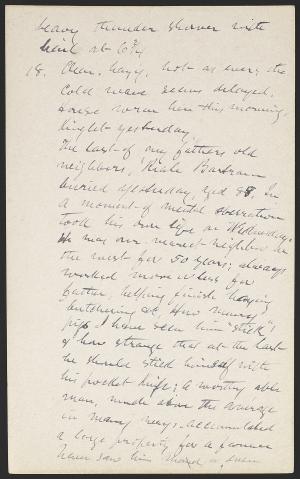 heavy thunder shower with
hail at 6 3/4
18. Clear, hazy, hot as ever; the
cold wave seems delayed.
House wren here this morning,
Kinglet yesterday.
The last of my fathers old
neighbors,
buried yesterday, aged 88. In
a moment of mental aberration
took his own life on Wednesday.
He was our nearest neighbor on
the west for 50 years; always
worked more or less for
father, helping finish haying
butchering &c. How many
pigs I have seen him "stick";
how strange that at the last
he should stick himself with
his pocket knife; a worthy able
man, much above the average
in many ways. Accumulated
a large property for a farmer
never saw him